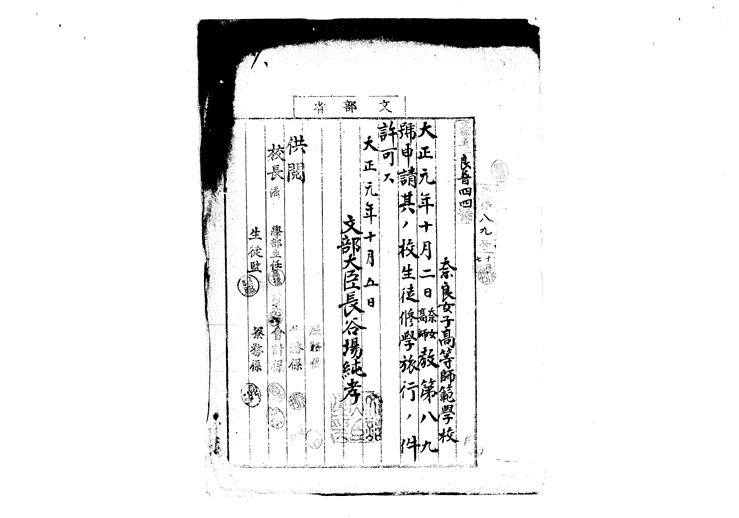 文部省
良普四四
八九
奈良女子高等師範學校
大正元年十月二日奈女高師教第八九
號申請其ノ校生徒修學旅行ノ件
許可ス
大正元年十月五日
文部大臣長谷場純孝
供閲
校長
學部主任
生徒監
會計係
務係